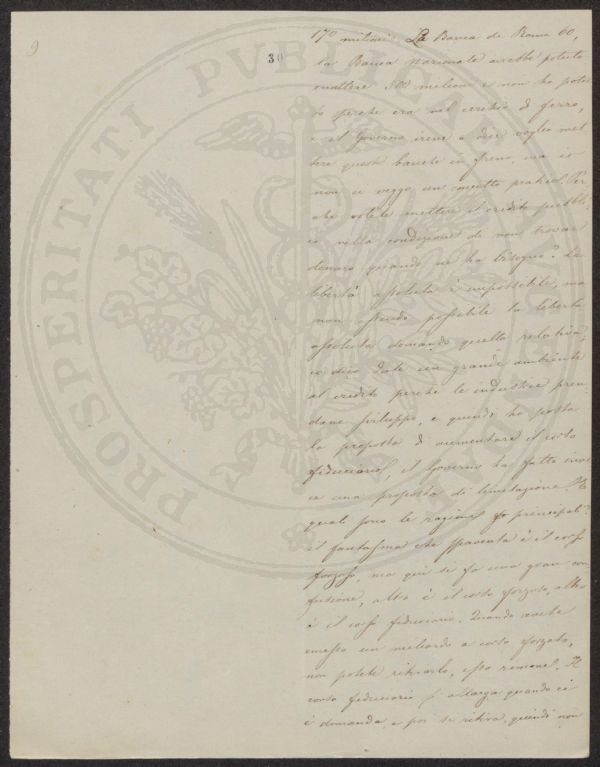 9
30
PROSPERITATI PVBLICAE
170 milioni. La Banca di Roma 60,
la Banca Nazionale avrebbe potuto
emettere milioni e non ha potu
to perché era nel cerchio di ferro,
e il Governo viene e dice voglio met
tere queste banche in freno, ma io
non ci veggo un concetto pratico. Per
che volete mettere il credito pubbli
co nella condizione di non trovar
denaro quando ne ha bisogno? La
libertà assoluta è impossibile, ma
non essendo possibile la libertà
assoluta domando quella relativa,
io dico date un grande ambiente
al credito perché le industrie pren
dano sviluppo, e quindi ho fatta
la proposta di aumentare il corso
fiduciario, il Governo ha fatto inve
ce una proposta di limitazione. E
quali sono le ragioni principali?
il fantasma che spaventa è il corso
forzoso, ma qui si fa una gran con
fusione, altro è il corso forzoso, altro
è il corso fiduciario. Quando avete
emesso un miliardo a corso forzato,
non potete ritirarlo, esso rimane. Il
corso fiduciario si allarga quando ci
è domanda e poi si ritira, quindi non